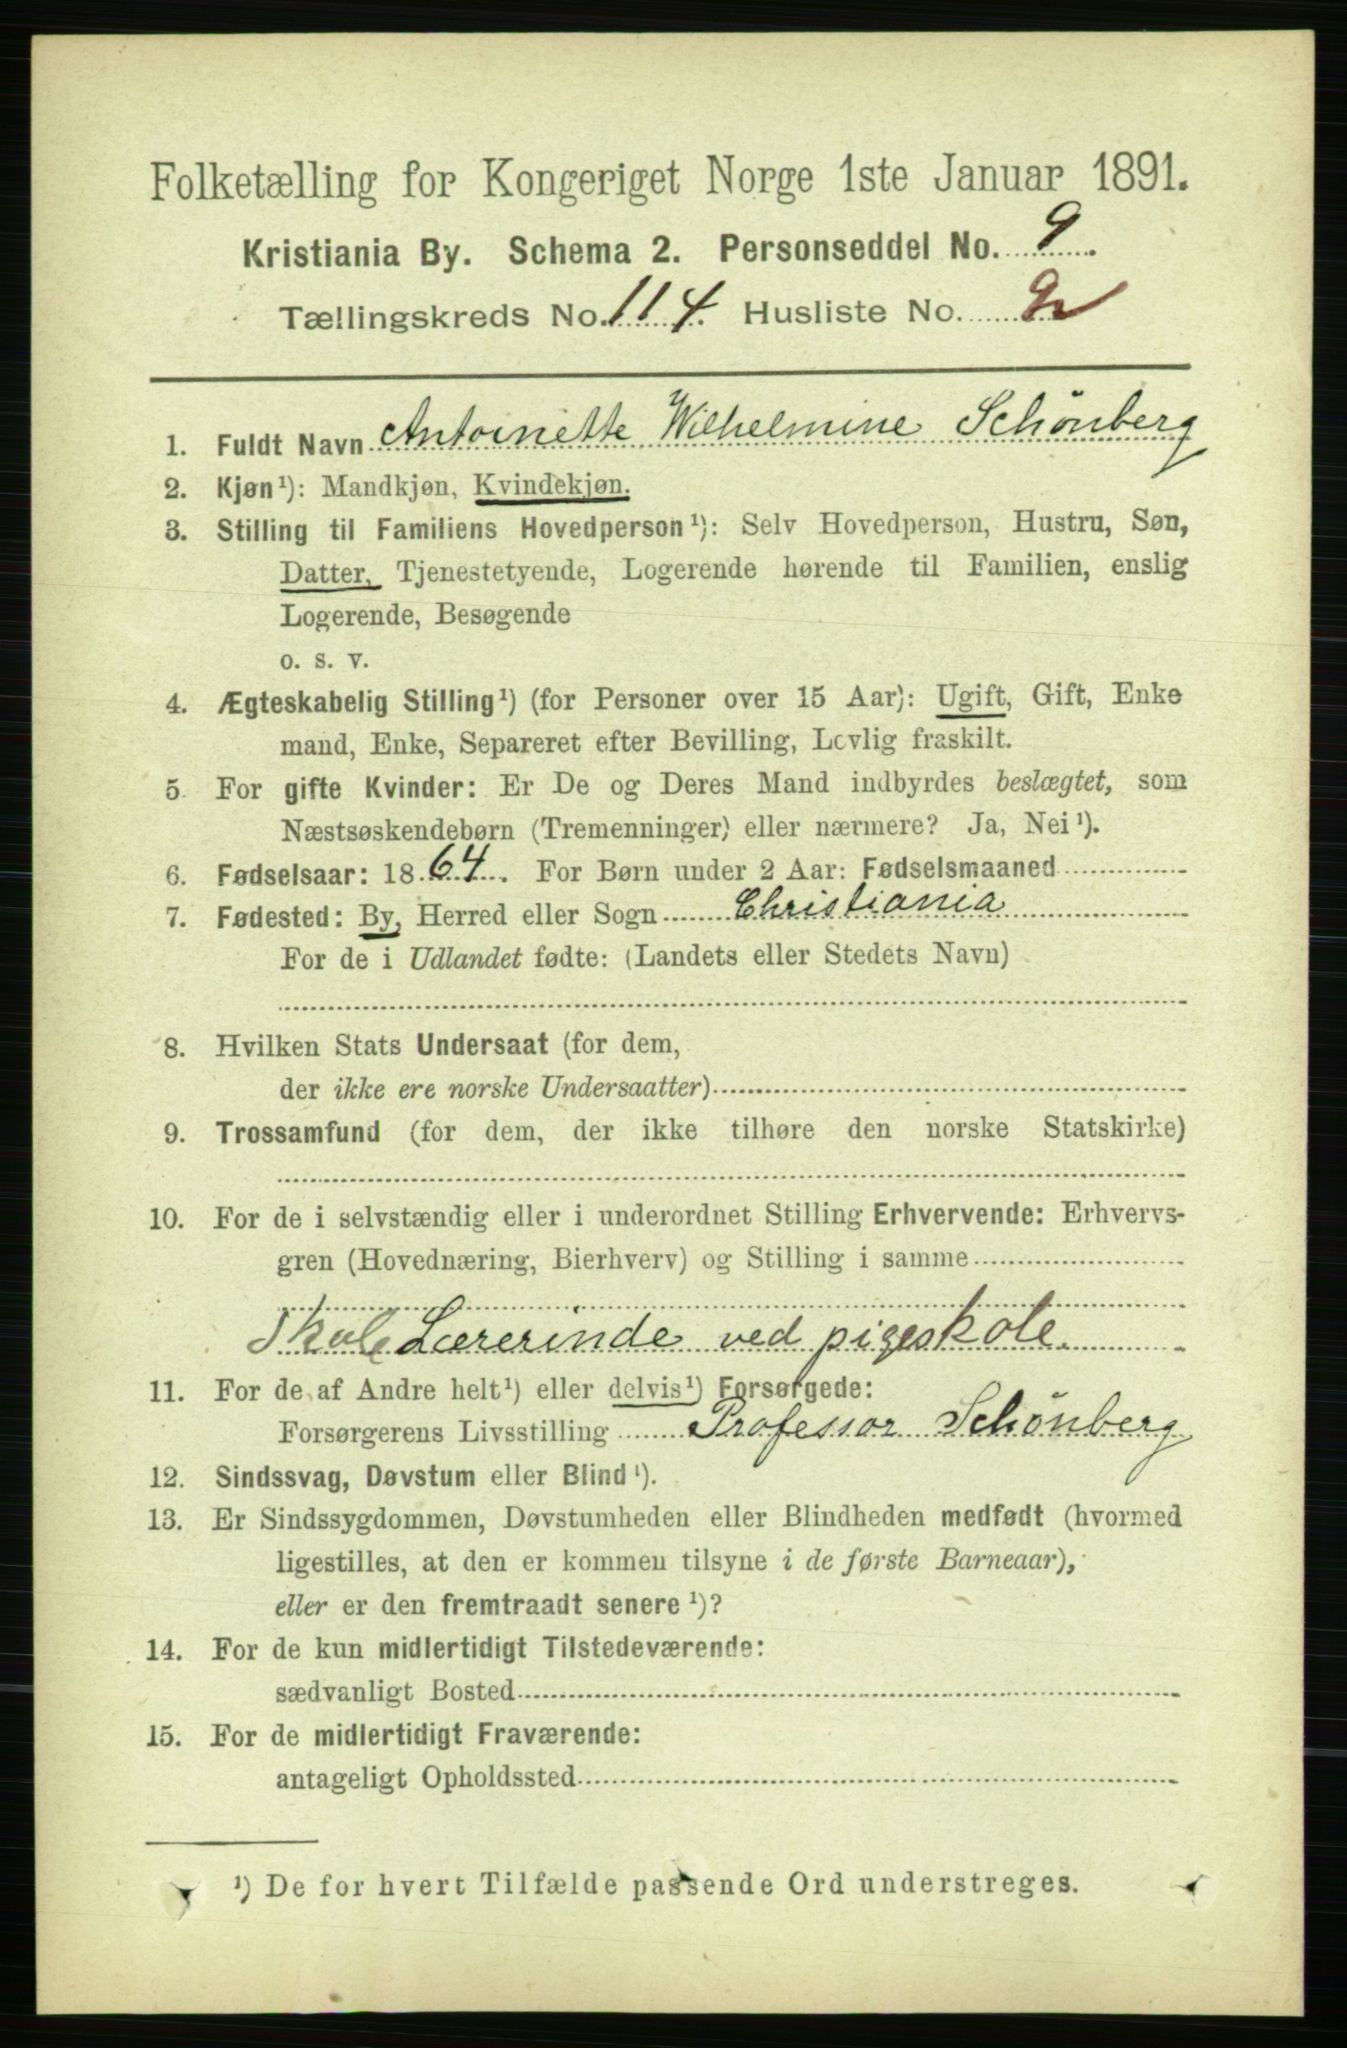 Folketælling for Kongeriget Norge 1ste Januar 1891.
Kristiania By. Schema 2. Personseddel No. 9
Tællingskreds No. 114. Husliste No. 2
1. Fuldt Navn Antoinette Wilhelmine Schönberg
2. Kjøn¹): Mandkjøn, Kvindekjøn.
3. Stilling til Familiens Hovedperson¹): Selv Hovedperson, Hustru, Søn,
Datter, Tjenestetyende, Logerende hørende til Familien, enslig
Logerende, Besøgende
o. s. v.
4. Ægteskabelig Stilling¹) (for Personer over 15 Aar): Ugift, Gift, Enke
mand, Enke, Separeret efter Bevilling, Lovlig fraskilt.
5. For gifte Kvinder: Er De og Deres Mand indbyrdes beslægtet, som
Næstsøskendebørn (Tremenninger) eller nærmere? Ja, Nei¹).
6. Fødselsaar: 1864. For Børn under 2 Aar: Fødselsmaaned
7. Fødested: By, Herred eller Sogn Christiania
For de i Udlandet fødte: (Landets eller Stedets Navn)
8. Hvilken Stats Undersaat (for dem,
der ikke ere norske Undersaatter)
9. Trossamfund (for dem, der ikke tilhøre den norske Statskirke)
10. For de i selvstændig eller i underordnet Stilling Erhvervende: Erhvervs-
gren (Hovednæring, Bierhverv) og Stilling i samme
Skole Lærerinde ved pigeskole.
11. For de af Andre helt¹) eller delvis¹) Forsørgede:
Forsørgerens Livsstilling Professor Schönberg
12. Sindssvag, Døvstum eller Blind¹).
13. Er Sindssygdommen, Døvstumheden eller Blindheden medfødt (hvormed
ligestilles, at den er kommen tilsyne i de første Barneaar),
eller er den fremtraadt senere¹)?
14. For de kun midlertidigt Tilstedeværende:
sædvanligt Bosted
15. For de midlertidigt Fraværende:
antageligt Opholdssted
¹) De for hvert Tilfælde passende Ord understreges.